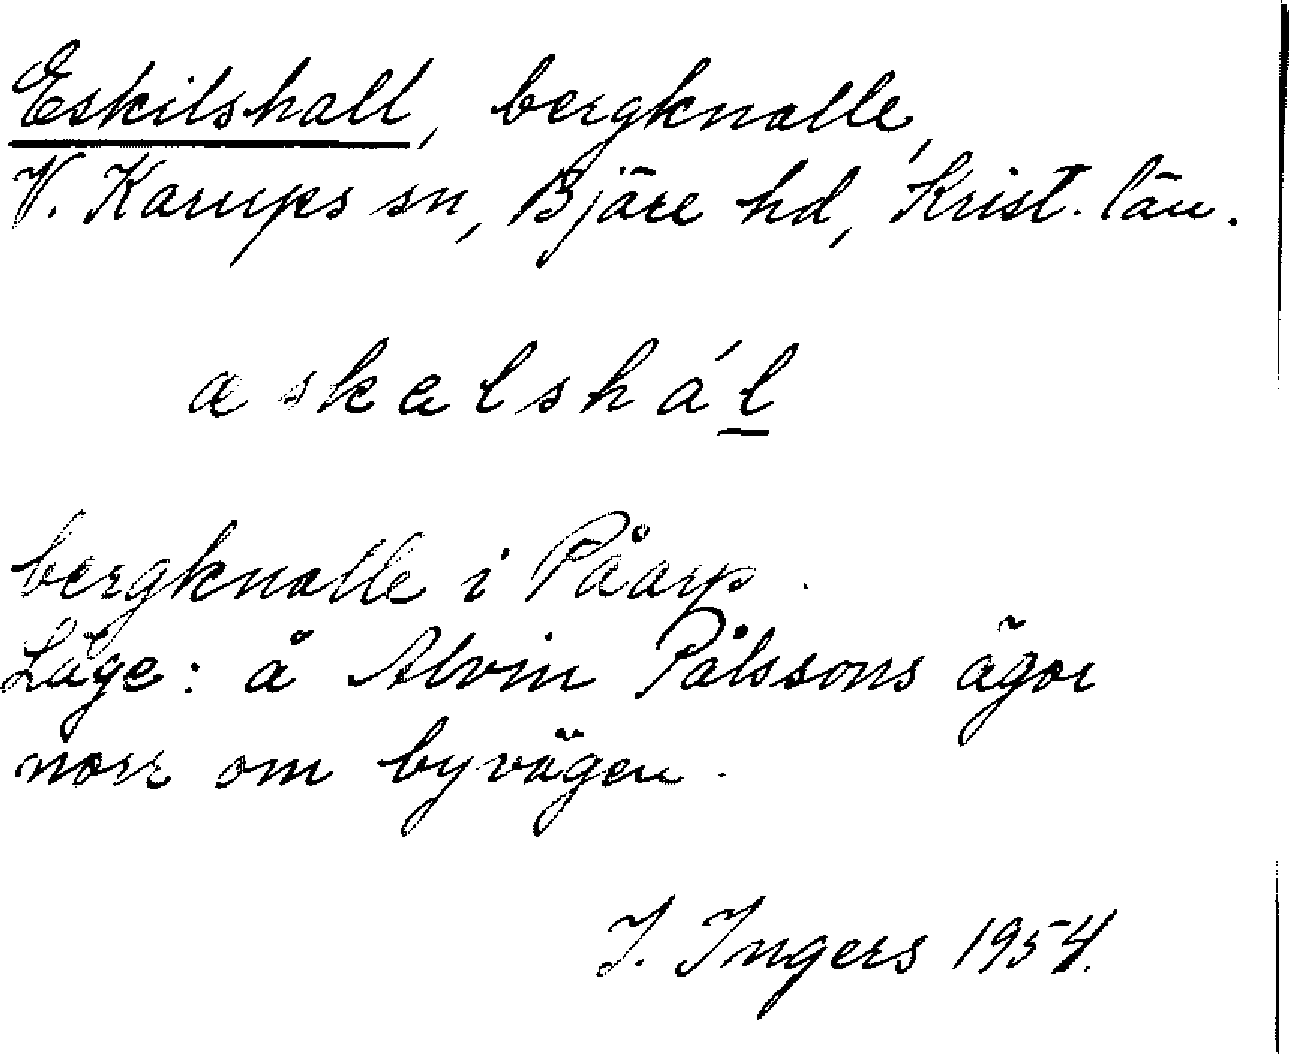 Eskilshall, bergknalle,
V. Karups sn, Bjäre hd, Krist. län.
æskælshál
bergknalle i Påarp.
Läge: å Alvin Pålssons ägor
norr om byvägen.
I. Ingers 1954.